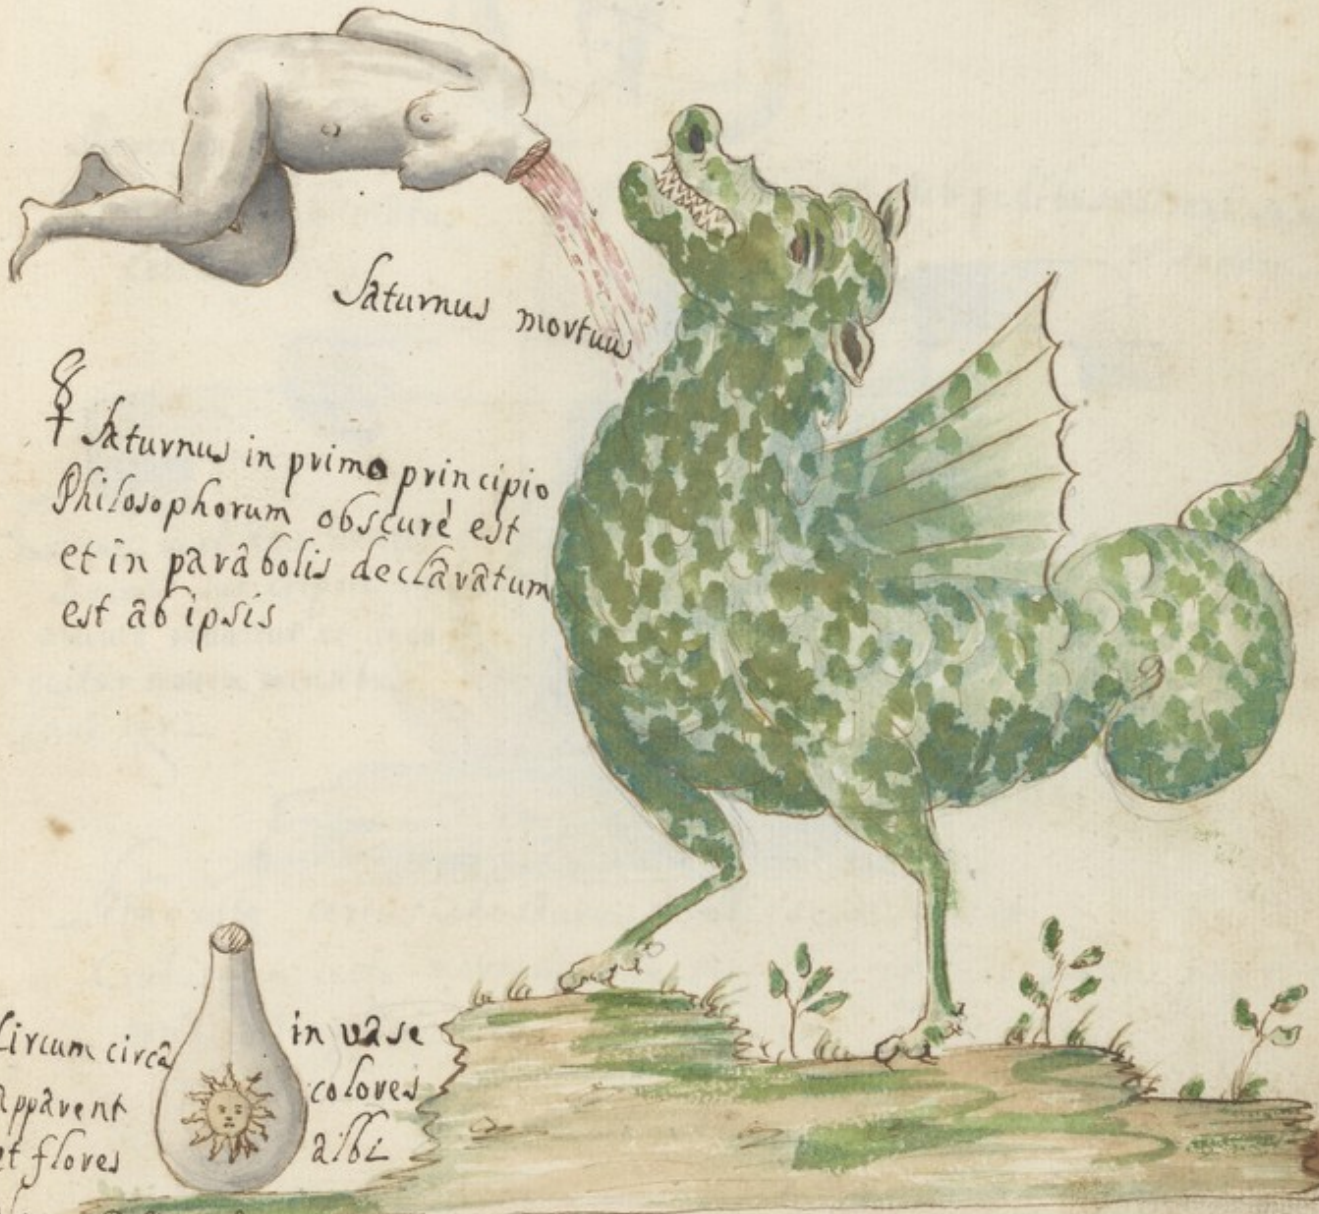 Saturnus mortuus
Saturnus in primo principio
Philosophorum obscurè est
et in parabolis declaratum
est ab ipsis
Circum circa in vase
apparent colores
et flores albi